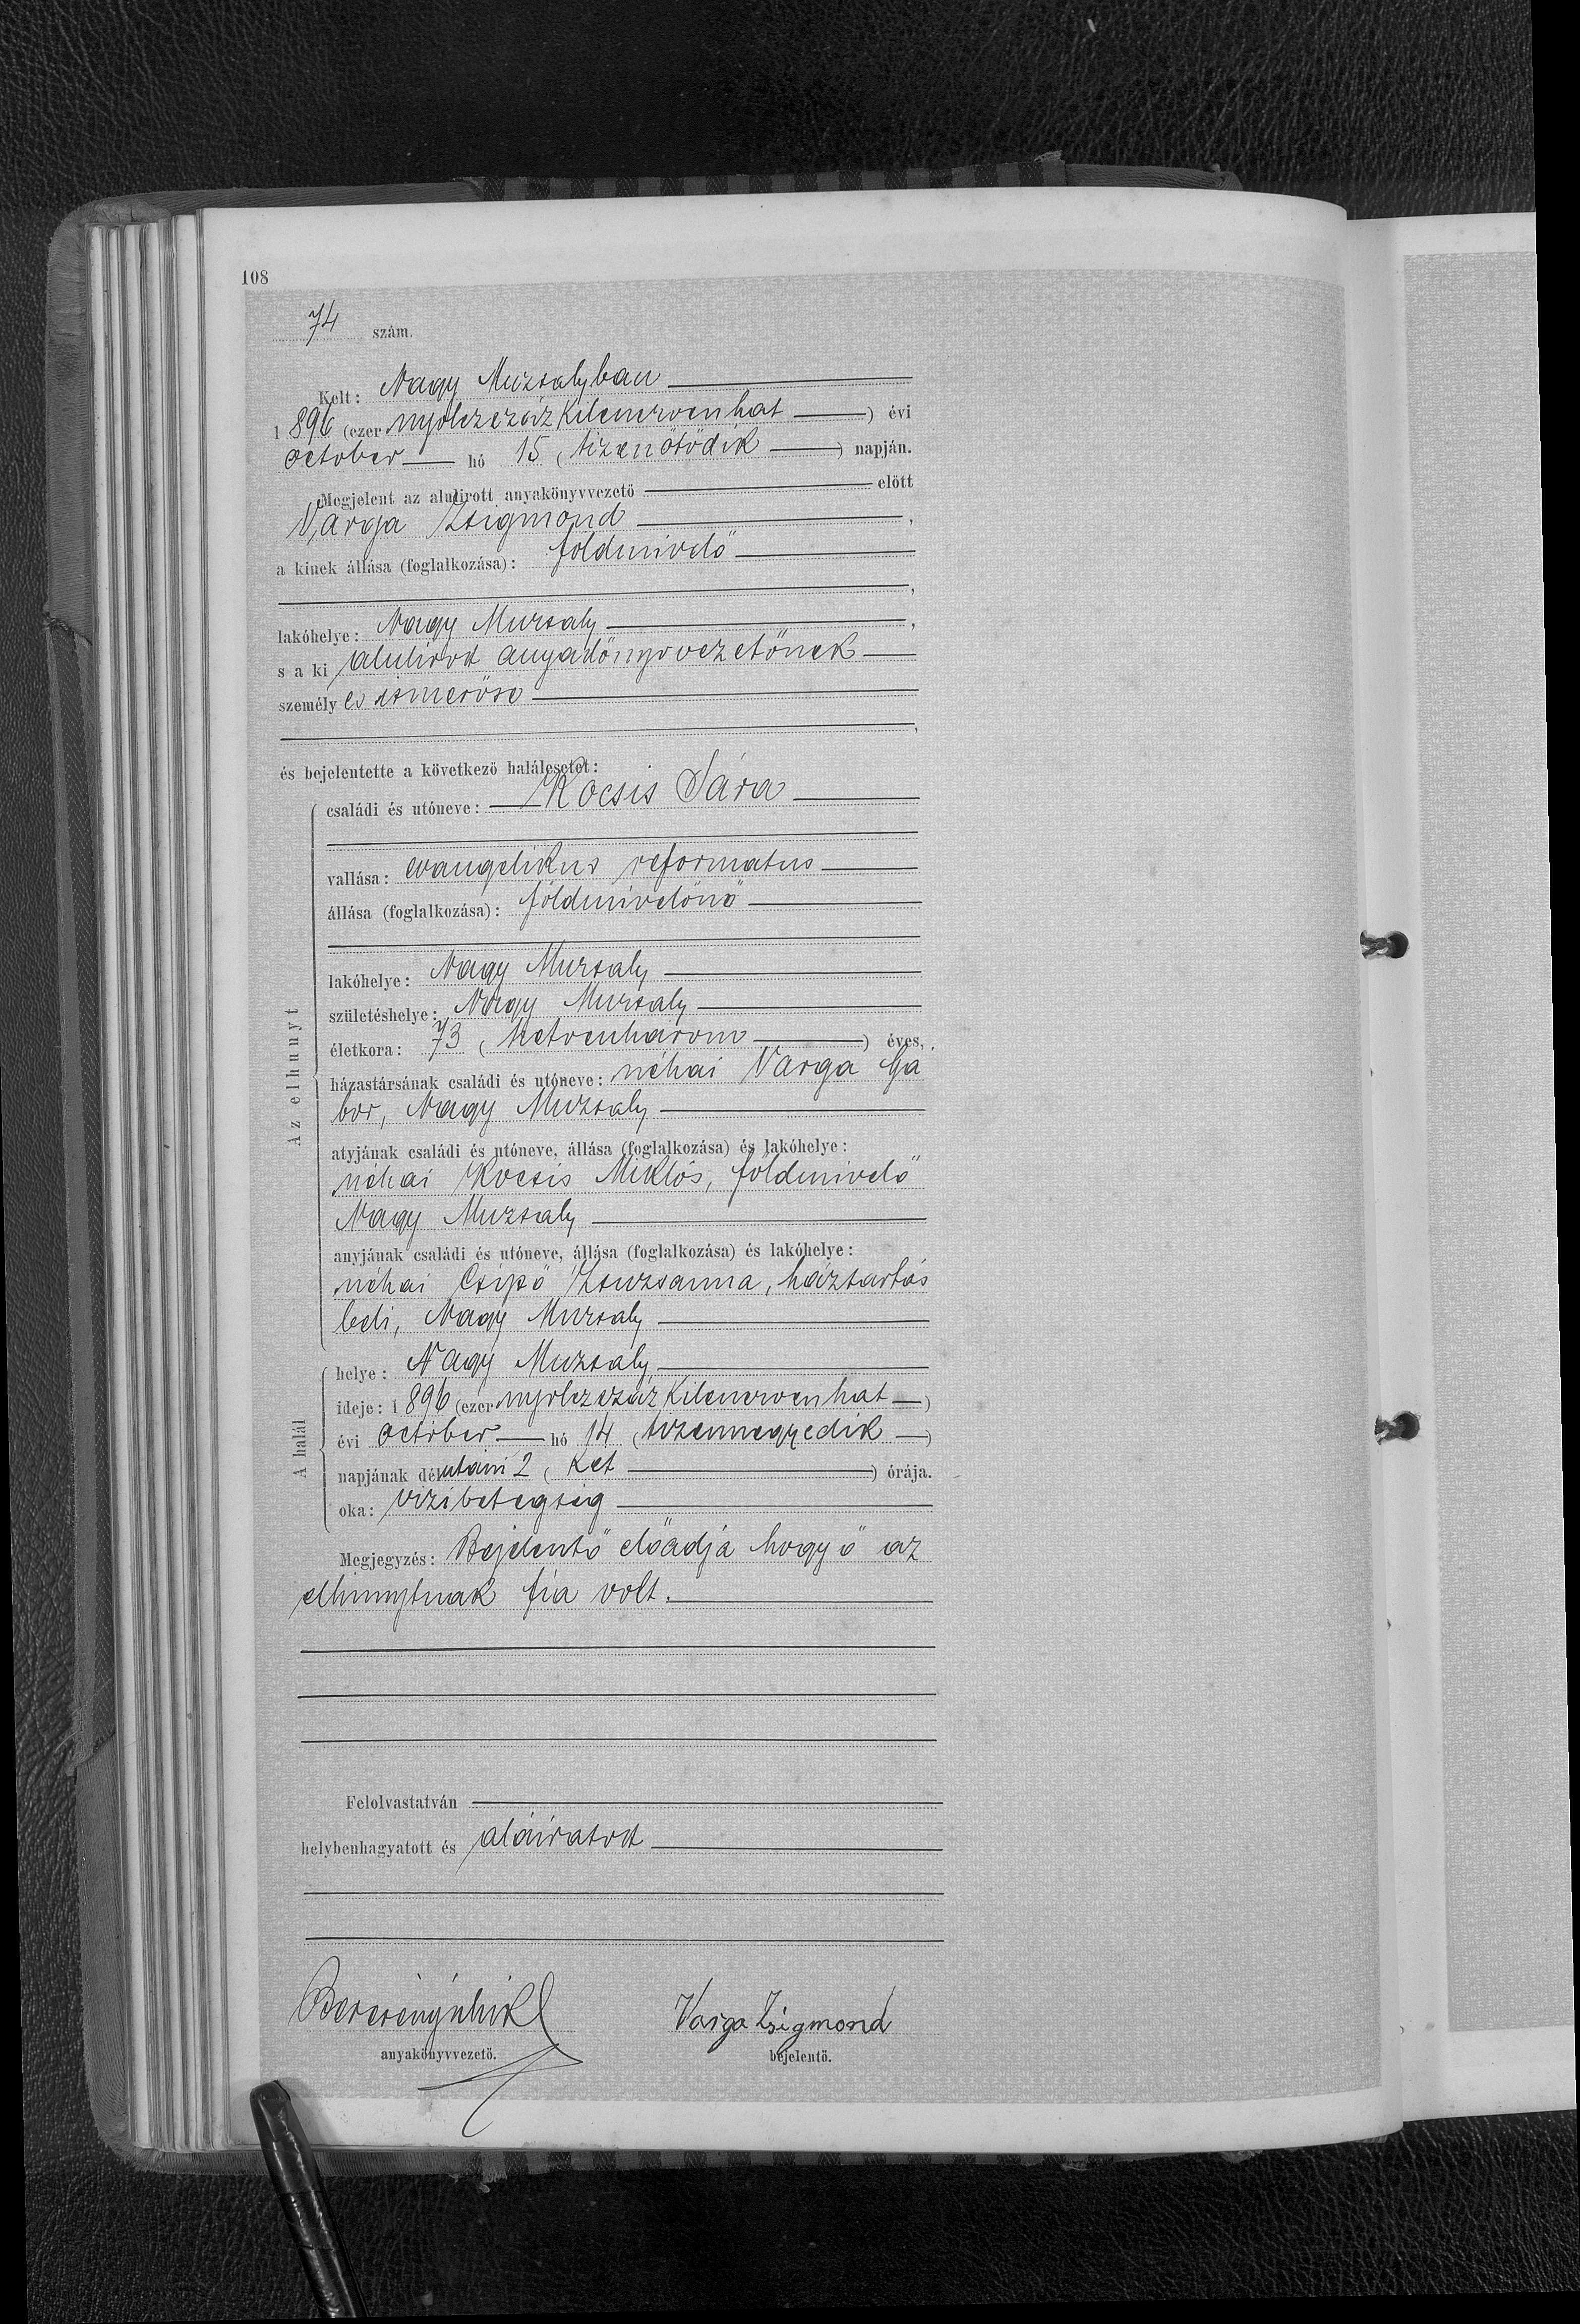 108
74 szám.
Kelt: Nagy Muzsalyban
1896 (ezer nyolczszáz kilenczven hat) évi
october hó 15 (tizenötödik) napján.
Megjelent az alulirott anyakönyvvezető előtt
Varga Zsigmond,
a kinek állása (foglalkozása): földmivelő
,
lakóhelye: Nagy Muzsaly,
s a ki alulirott anyakönyvvezetőnek
személyes ismerőse
,
és bejelentette a következő halálesetet:
Az elhunyt
családi és utóneve: Kocsis Sára
vallása: evangelikus reformatus
állása (foglalkozása): földmivelőnő
lakóhelye: Nagy Muzsaly
születéshelye: Nagy Muzsaly
életkora: 73 (hetvenhárom) éves,
házastársának családi és utóneve: néhai Varga Gá
bor, Nagy Muzsaly
atyjának családi és utóneve, állása (foglalkozása) és lakóhelye:
néhai Kocsis Miklós, földmivelő
Nagy Muzsaly
anyjának családi és utóneve, állása (foglalkozása) és lakóhelye:
néhai Csipő Zsuzsanna, háztartás
beli, Nagy Muzsaly
A halál
helye: Nagy Muzsaly
ideje: 1896 (ezer nyolczszáz kilenczven hat)
évi october hó 14 (tizennegyedik)
napjának délutáni 2 (két) órája.
oka: vizibetegség
Megjegyzés: Bejelentő előadja hogy ő az
elhunytnak fia volt.
Felolvastatván
helybenhagyatott és aláiratott
anyakönyvvezető.
Varga Zsigmond
bejelentő.